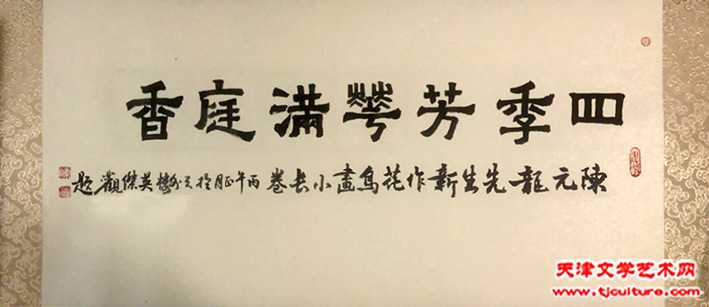 四季芳華滿庭香
陳元龍先生新作花鳥畫小長卷 丙午正月於英傑觀題
天津文学艺术网
www.tjculture.com